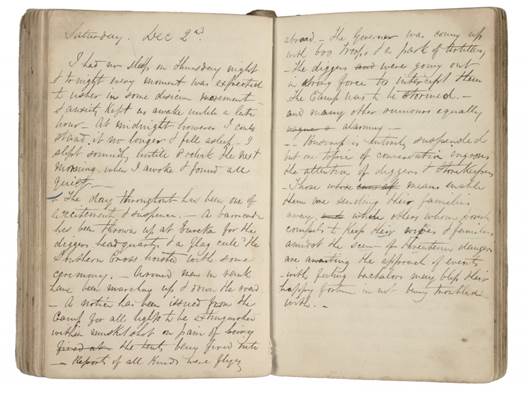 Saturday. Dec 2nd.
I had no sleep on Thursday night
& tonight every moment was expected
to usher in some decisive movement -
Anxiety kept us awake until a late
hour - At midnight however I could
stand it no longer & fell asleep - I
slept soundly until 8 oclock the next
morning, when I awoke & found all
quiet -
The day throughout has been one of
excitement & suspense. - A barricade
has been thrown up at Eureka for the
diggers headquarters & a flag call'd the
Southern Cross hoisted with some
ceremony. - Armed men in
have been marching up & down the road
- A notice has been issued from the
Camp for all lights to be extinguished
within musket shot on pain of being
fired at the tents being fired into
- Reports of all kinds were flying
abroad - The Governor was coming up
with 600 Troops & a park of Artillery,
- The diggers and were going out
in strong force to intercept them
The Camp was to be stormed. -
and many other rumours equally
alarming -
- Business is entirely suspended
the attention of diggers & Storekeepers
- Those means enable
them are sending their families
away, others whom
compels to keep their wives & families
amidst the scene of threatened dangers
are awaiting the approach of events
with bachelors may bless their
happy fortune in not being troubled
with. -